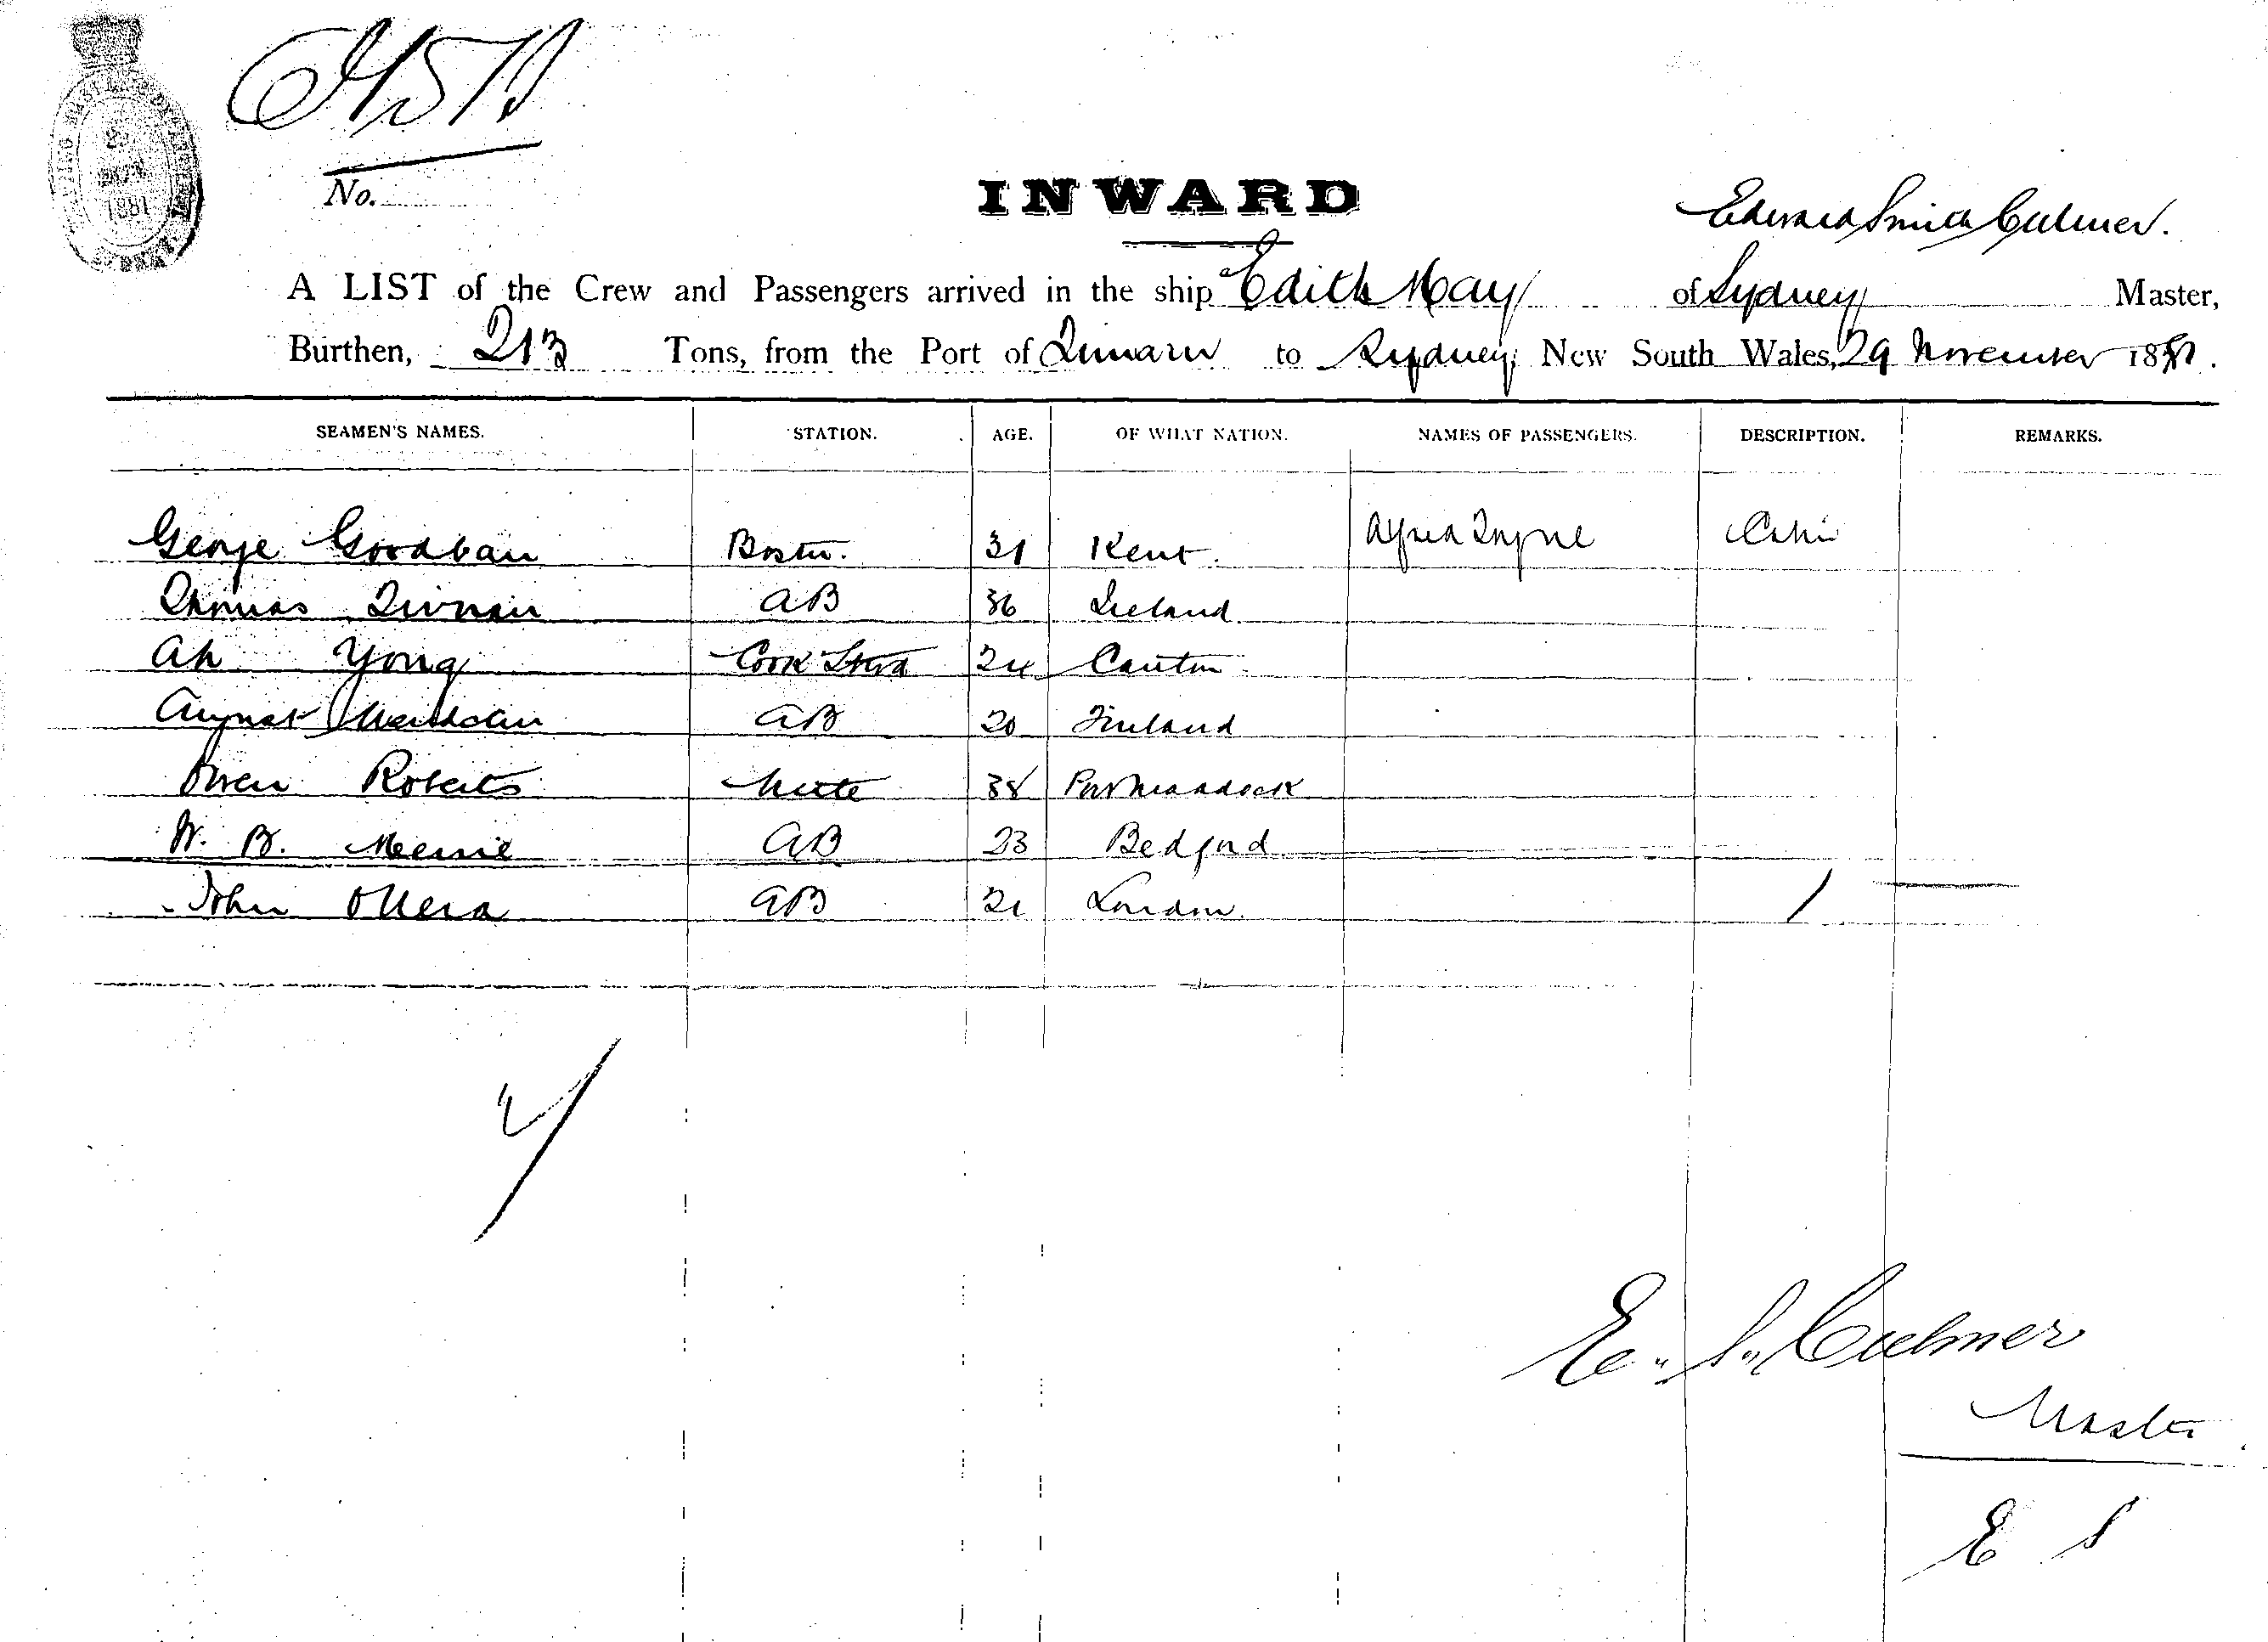 1881
No.
INWARD
Edward Smith Culmer.
A LIST of the Crew and Passengers arrived in the ship Edith May of Sydney Master,
Burthen, 213 Tons, from the Port of Timaru to Sydney, New South Wales, 29 November 1881.
SEAMEN'S NAMES. STATION. AGE. OF WHAT NATION. NAMES OF PASSENGERS. DESCRIPTION. REMARKS.
George Goodban Bosun. 31 Kent. Alfred Cabin
Thomas 36 Ireland
Ah Yong Cook Stwd 24 Canton
August AB 20 Finland
Owen Roberts Mate 38 Portmaddock
W. B. AB 23 Bedford
John AB 21 London.
1
E. S. Culmer
Master
E S